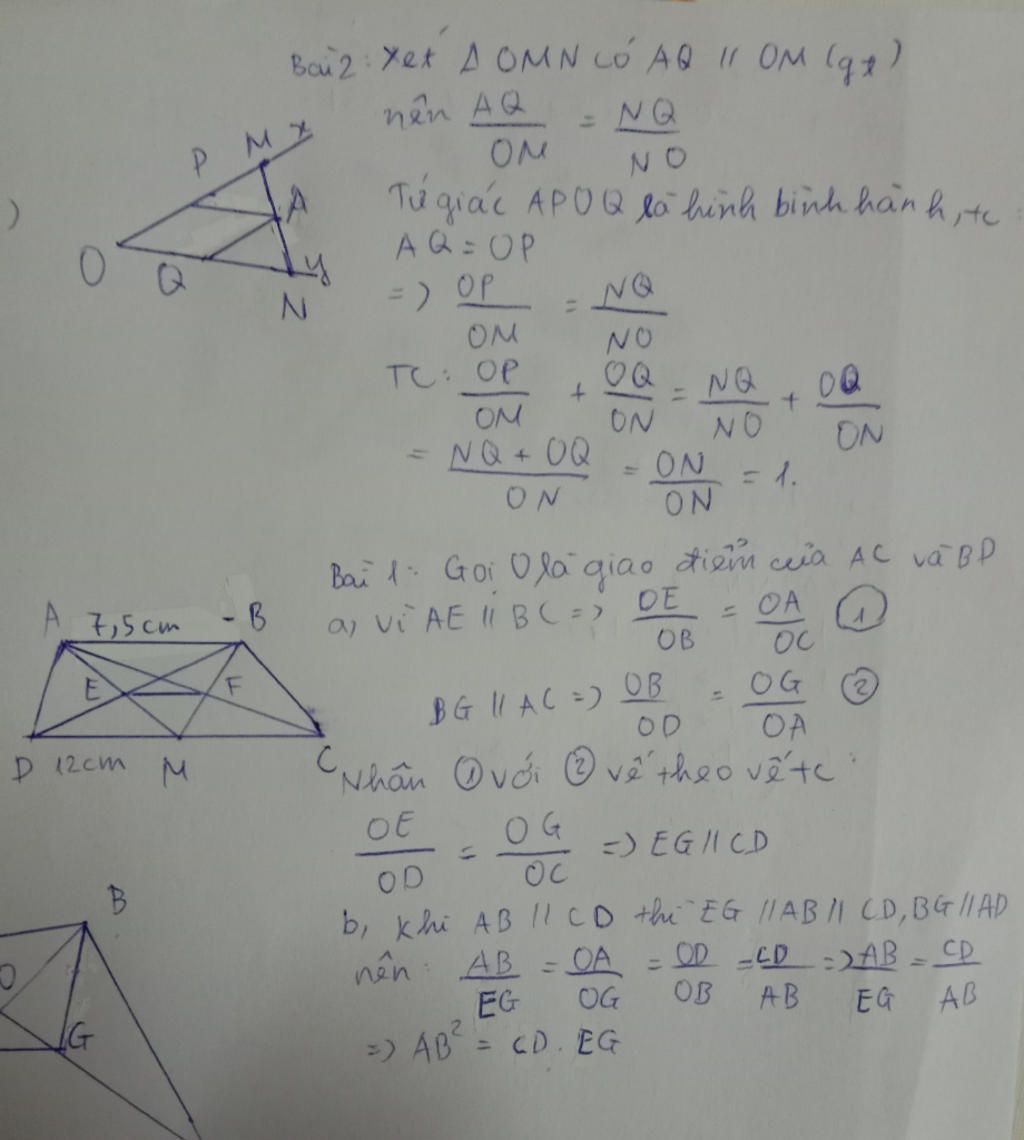 Bài 2: Xét Δ OMN có AQ // OM (gt)
nên AQ/OM = NQ/NO
Tứ giác APOQ là hình bình hành, tc:
AQ = OP
=> OP/OM = NQ/NO
TC: OP/OM + OQ/ON = NQ/NO + OQ/ON
= (NQ + OQ)/ON = ON/ON = 1.
)
P M x
A
O Q y
N
Bài 1: Gọi O là giao điểm của AC và BD
a, Vì AE // BC => OE/OB = OA/OC ①
BG // AC => OB/OD = OG/OA ②
Nhân ① với ② vế theo vế tc:
OE/OD = OG/OC => EG // CD
b, Khi AB // CD thì EG // AB // CD, BG // AD
nên: AB/EG = OA/OG = OD/OB = CD/AB => AB/EG = CD/AB
=> AB² = CD . EG
A 7,5cm B
E F
D 12cm M C
B
O
G